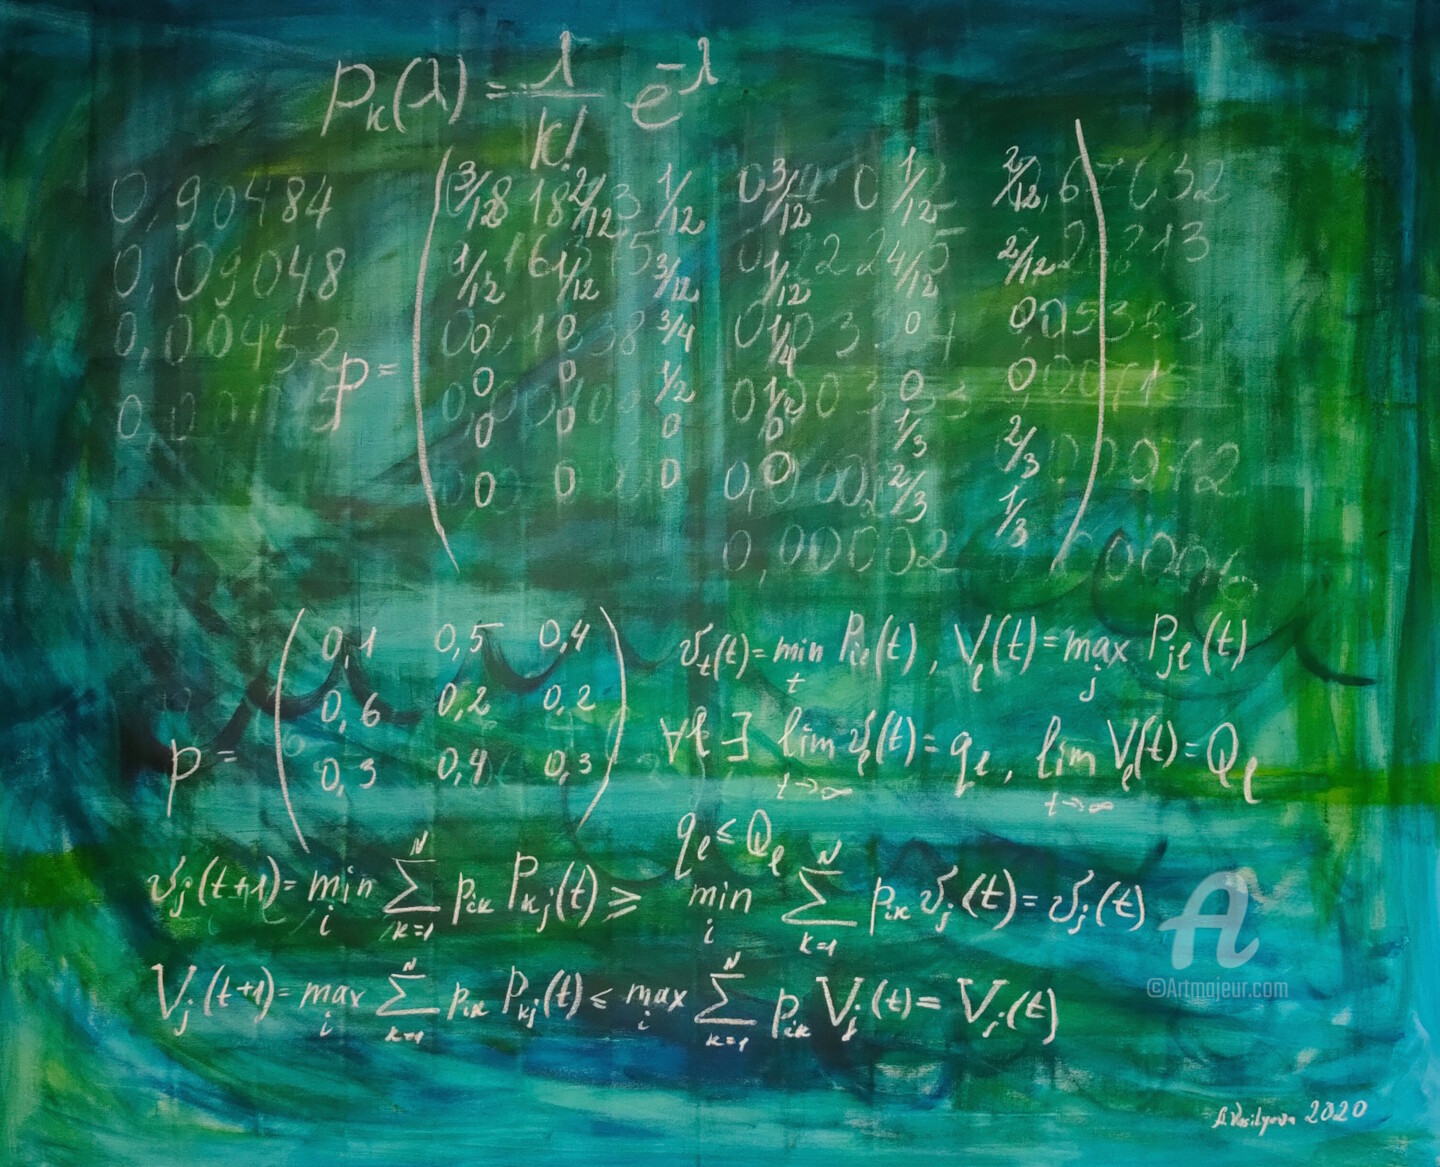 P_k(λ) = λ/k! e^-λ
0,90484
0,09048
0,00452
3/12 2/12 1/12 3/12 1/12 2/12
1/12 1/12 3/12 1/12 4/12 2/12
0 0 3/4 1/4 0 0
p =
0 0 1/2 1/2 0 0
0 0 0 0 1/3 2/3
0 0 0 0 2/3 1/3
0,00002
0,1 0,5 0,4
0,6 0,2 0,2
p =
0,3 0,4 0,3
v_t(t) = min_t P_ie(t), V_e(t) = max_j P_je(t)
∀l ∃ lim_t→∞ v_e(t) = q_e, lim_t→∞ V_e(t) = Q_e
q_e ≤ Q_e
v_j(t+1) = min_i ∑_k=1^N p_ik P_kj(t) ⩾ min_i ∑_k=1^N p_ik v_j(t) = v_j(t)
V_j(t+1) = max_i ∑_k=1^N p_ik P_kj(t) ⩽ max_i ∑_k=1^N p_ik V_j(t) = V_j(t)
©Artmajeur.com
A.Vasilyeva 2020